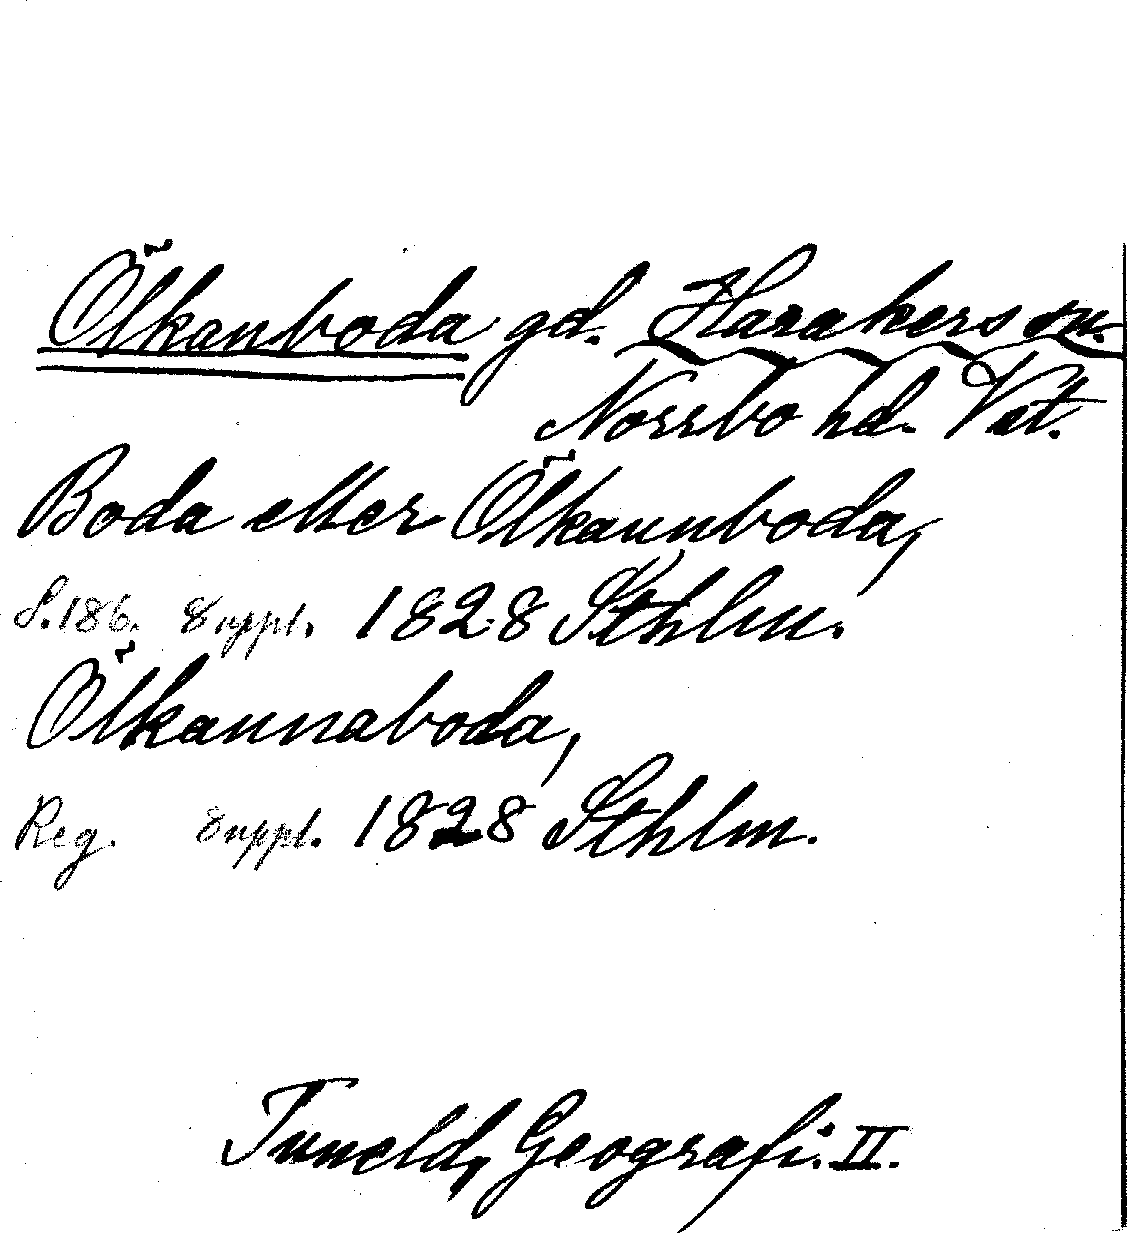 Ölkanboda gd. Harakers sn.
Norrbo hd. Vät.
Boda eller Ölkannboda,
S. 186. Suppl. 1828 Sthlm.
Ölkannaboda,
Reg. Suppl. 1828 Sthlm.
Tuneld, Geografi. II.